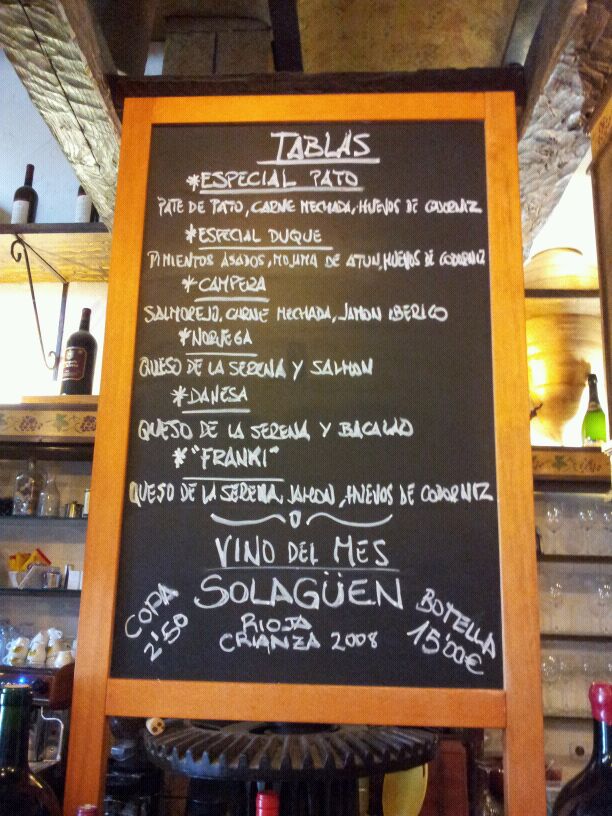 TABLAS
*ESPECIAL PATO
PATE DE PATO, CARNE MECHADA, HUEVOS DE CODORNIZ
*ESPECIAL DUQUE
PIMIENTOS ASADOS, MOJAMA DE ATUN, HUEVOS DE CODORNIZ
*CAMPERA
SALMOREJO, CARNE MECHADA, JAMON IBERICO
*NORUEGA
QUESO DE LA SERENA Y SALMON
*DANESA
QUESO DE LA SERENA Y BACALAO
*"FRANKI"
QUESO DE LA SERENA, JAMON, HUEVOS DE CODORNIZ
VINO DEL MES
SOLAGÜEN
RIOJA
CRIANZA 2008
COPA
2'50
BOTELLA
15'00€